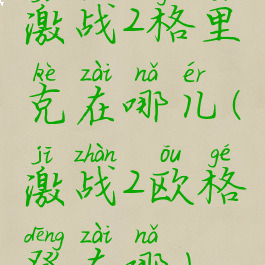 激战2格里
kè zài nǎ ér
克在哪儿(
jī zhàn ōu gé
激战2欧格
dēng zài nǎ
登在哪)